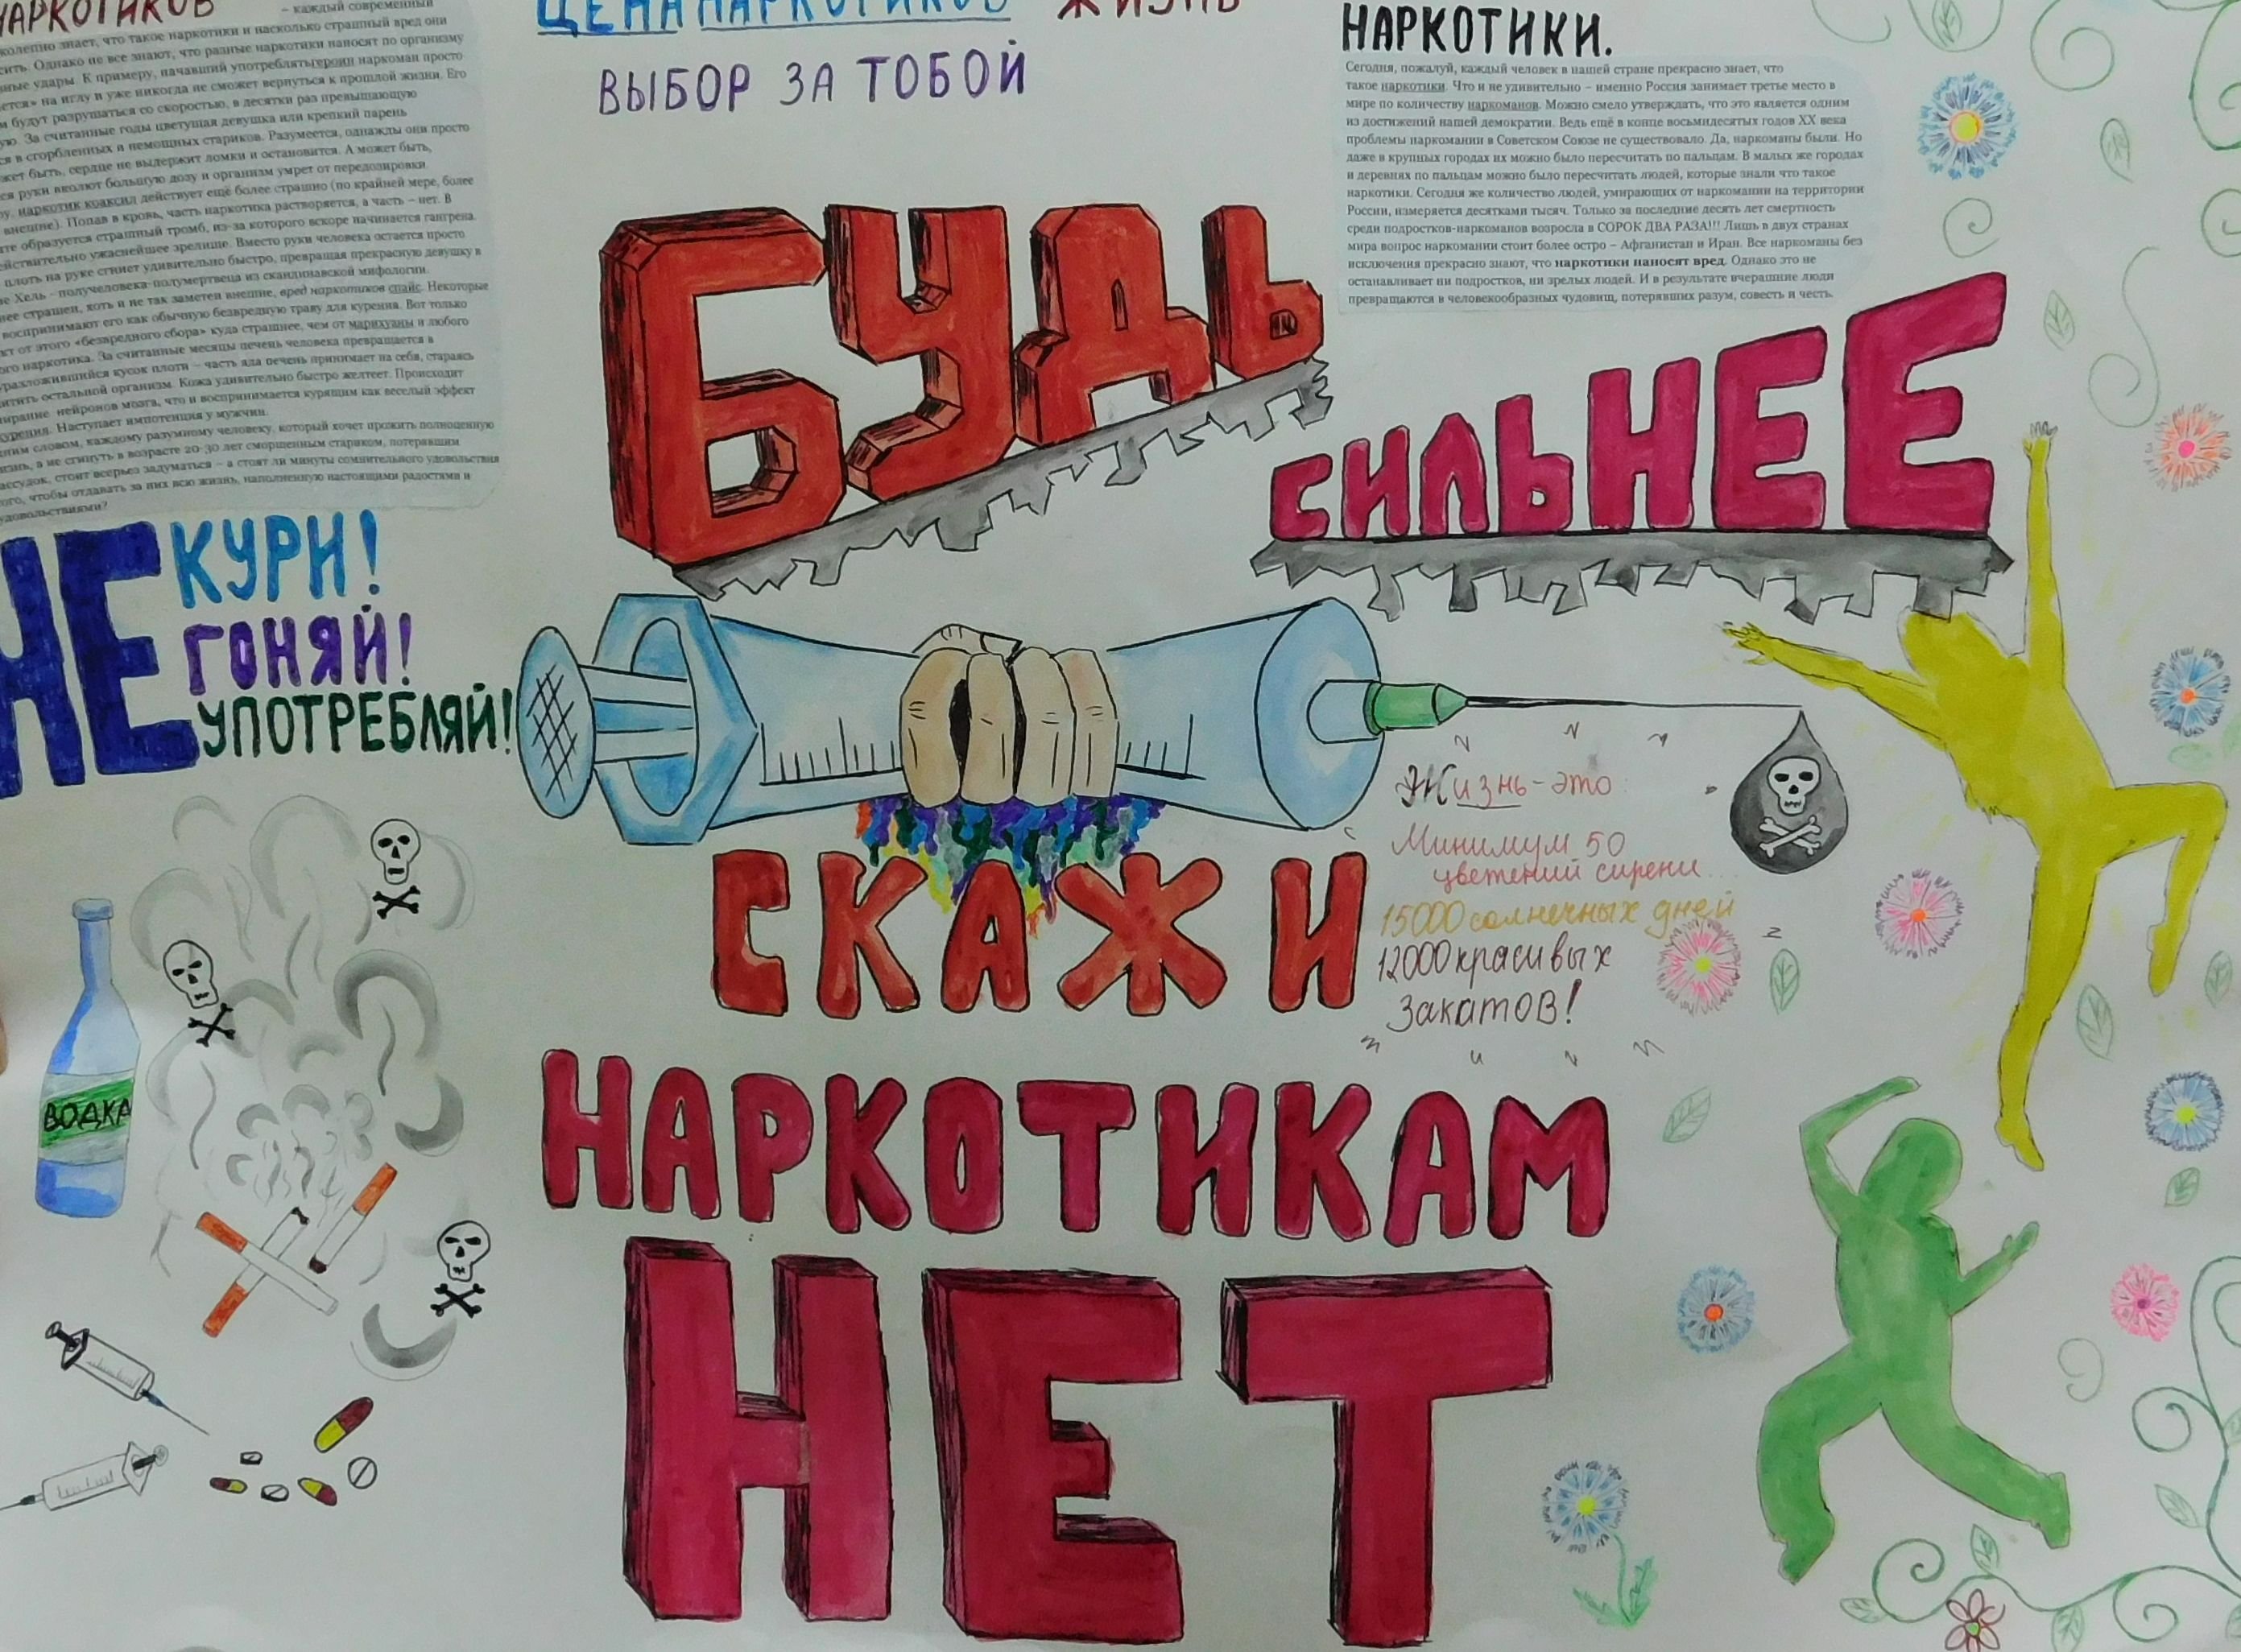 НАРКОТИКОВ
– каждый современный
знает, что такое наркотики и насколько страшный вред они
Однако не все знают, что разные наркотики наносят по организму
удары. К примеру, начавший употреблять героин наркоман просто
на иглу и уже никогда не сможет вернуться к прошлой жизни. Его
будут разрушаться со скоростью, в десятки раз превышающую
За считанные годы цветущая девушка или крепкий парень
в сгорбленных и немощных стариков. Разумеется, однажды они просто
быть, сердце не выдержит ломки и остановится. А может быть,
руки вколют большую дозу и организм умрет от передозировки.
наркотик коаксил действует ещё более страшно (по крайней мере, более
внешне). Попав в кровь, часть наркотика растворяется, а часть – нет. В
образуется страшный тромб, из-за которого вскоре начинается гангрена.
ужаснейшее зрелище. Вместо руки человека остается просто
плоть на руке сгниет удивительно быстро, превращая прекрасную девушку в
Хель - получеловека-полумертвеца из скандинавской мифологии.
страшен, хоть и не так заметен внешне, вред наркотиков спайс. Некоторые
воспринимают его как обычную безвредную траву для курения. Вот только
от этого «безвредного сбора» куда страшнее, чем от марихуаны и любого
наркотика. За считанные месяцы печень человека превращается в
кусок плоти – часть яда печень принимает на себя, стараясь
остальной организм. Кожа удивительно быстро желтеет. Происходит
нейронов мозга, что и воспринимается курящим как веселый эффект
курения. Наступает импотенция у мужчин.
словом, каждому разумному человеку, который хочет прожить полноценную
а не сгинуть в возрасте 20-30 лет сморщенным стариком, потерявшим
рассудок, стоит всерьез задуматься – а стоят ли минуты сомнительного удовольствия
того, чтобы отдавать за них всю жизнь, наполненную настоящими радостями и
удовольствиями?
ЦЕНА НАРКОТИКОВ ЖИЗНЬ
ВЫБОР ЗА ТОБОЙ
НАРКОТИКИ.
Сегодня, пожалуй, каждый человек в нашей стране прекрасно знает, что
такое наркотики. Что и не удивительно – именно Россия занимает третье место в
мире по количеству наркоманов. Можно смело утверждать, что это является одним
из достижений нашей демократии. Ведь ещё в конце восьмидесятых годов XX века
проблемы наркомании в Советском Союзе не существовало. Да, наркоманы были. Но
даже в крупных городах их можно было пересчитать по пальцам. В малых же городах
и деревнях по пальцам можно было пересчитать людей, которые знали что такое
наркотики. Сегодня же количество людей, умирающих от наркомании на территории
России, измеряется десятками тысяч. Только за последние десять лет смертность
среди подростков-наркоманов возросла в СОРОК ДВА РАЗА!!! Лишь в двух странах
мира вопрос наркомании стоит более остро – Афганистан и Иран. Все наркоманы без
исключения прекрасно знают, что наркотики наносят вред. Однако это не
останавливает ни подростков, ни зрелых людей. И в результате вчерашние люди
превращаются в человекообразных чудовищ, потерявших разум, совесть и честь.
БУДЬ
СИЛЬНЕЕ
НЕ КУРИ!
ГОНЯЙ!
УПОТРЕБЛЯЙ!
Жизнь-это:
Минимум 50
цветений сирени...
15000 солнечных дней
12000 красивых
закатов!
СКАЖИ
НАРКОТИКАМ
НЕТ
ВОДКА